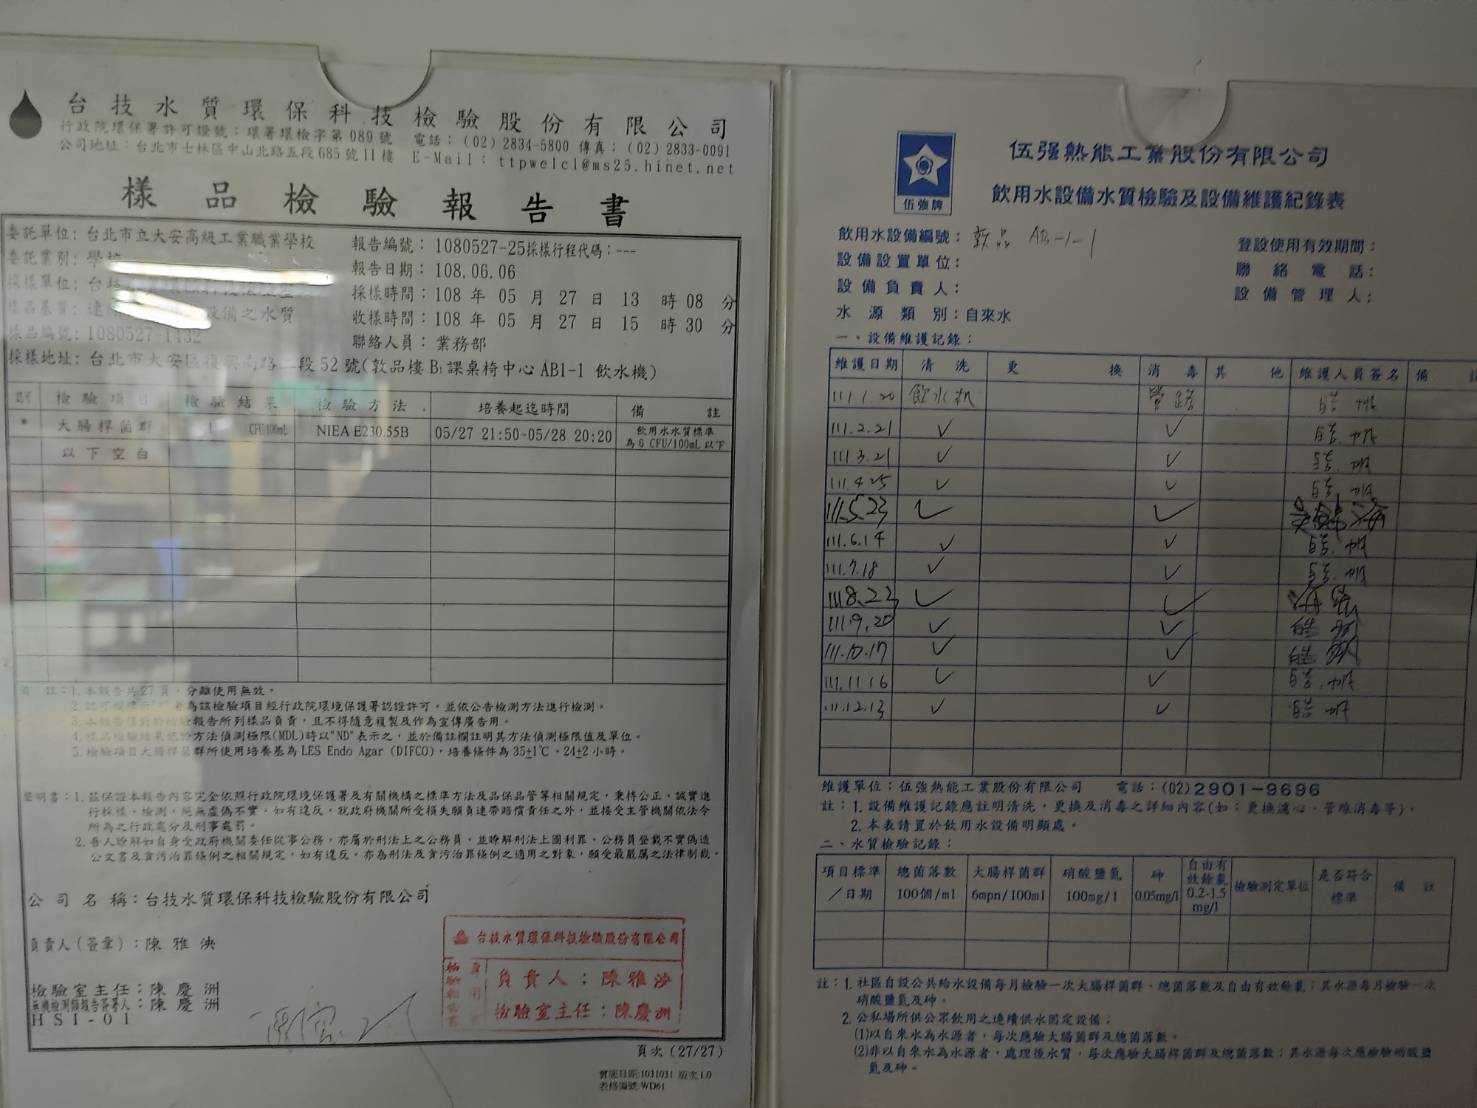 台技水質環保科技檢驗股份有限公司
行政院環保署許可證號：環署環檢字第089號 電話：(02) 2834-5800 傳真：(02) 2833-0091
公司地址：台北市士林區中山北路五段685號11樓 E-Mail：ttpwelcl@ms25.hinet.net
樣品檢驗報告書
委託單位：台北市立大安高級工業職業學校
報告編號：1080527-25採樣行程代碼：---
委託業別：學校
報告日期：108.06.06
採樣單位：台
採樣時間：108 年 05 月 27 日 13 時 08 分
樣品基質：連 設備之水質
收樣時間：108 年 05 月 27 日 15 時 30 分
樣品編號：1080527-1432
聯絡人員：業務部
採樣地址：台北市大安區復興南路二段52號(敦品樓B1課桌椅中心AB1-1 飲水機)
檢驗項目 檢驗結果 檢驗方法 培養起迄時間 備註
* 大腸桿菌群 CFU/100mL NIEA E230.55B 05/27 21:50~05/28 20:20 飲用水水質標準
為6 CFU/100mL以下
以下空白
備註：1.本報告共27頁，分離使用無效。
為該檢驗項目經行政院環境保護署認證許可，並依公告檢測方法進行檢測。
3.本報告僅對於檢驗報告所列樣品負責，且不得隨意複製及作為宣傳廣告用。
4.樣品檢驗結果低於方法偵測極限(MDL)時以"ND"表示之，並於備註欄註明其方法偵測極限值及單位。
5.檢驗項目大腸桿菌群所使用培養基為LES Endo Agar (DIFCO)，培養條件為35±1℃、24±2小時。
聲明書：1.茲保證本報告內容完全依照行政院環境保護署及有關機構之標準方法及品保品管等相關規定，秉持公正、誠實進
行採樣、檢測，絕無虛偽不實，如有違反，就政府機關所受損失願負連帶賠償責任之外，並接受主管機關依法令
所為之行政處分及刑事處罰。
2.吾人瞭解如自身受政府機關委任從事公務，亦屬於刑法上之公務員，並瞭解刑法上圖利罪、公務員登載不實偽造
公文書及貪污治罪條例之相關規定，如有違反，亦為刑法及貪污治罪條例之適用之對象，願受最嚴厲之法律制裁。
公司名稱：台技水質環保科技檢驗股份有限公司
負責人(簽章)：陳雅泱
檢驗室主任：陳慶洲
無機檢測類報告簽署人：陳慶洲
HSI-01
台技水質環保科技檢驗股份有限公司
負責人：陳雅泱
檢驗室主任：陳慶洲
頁次(27/27)
實施日期:1031031 版次1.0
表格編號:WD61
伍強牌
伍強熱能工業股份有限公司
飲用水設備水質檢驗及設備維護紀錄表
飲用水設備編號：敦品 AB-1-1
登設使用有效期間：
設備設置單位：
聯絡電話：
設備負責人：
設備管理人：
水源類別：自來水
一、設備維護記錄：
維護日期 清洗 更換 消毒 其他 維護人員簽名 備註
111.1.20 飲水机 管路
111.2.21 ✓ ✓
111.3.21 ✓ ✓
111.4.25 ✓ ✓
111.5.23 ✓ ✓
111.6.14 ✓ ✓
111.7.18 ✓ ✓
111.8.22 ✓ ✓
111.9.20 ✓ ✓
111.10.17 ✓ ✓
111.11.16 ✓ ✓
111.12.13 ✓ ✓
維護單位：伍強熱能工業股份有限公司 電話：(02)2901-9696
註：1.設備維護記錄應註明清洗，更換及消毒之詳細內容(如：更換濾心、管維消毒等)。
2.本表請置於飲用水設備明顯處。
二、水質檢驗記錄：
項目標準／日期 總菌落數100個/ml 大腸桿菌群6mpn/100ml 硝酸鹽氮100mg/l 砷0.05mg/l 自由有效餘氯0.2-1.5mg/l 檢驗測定單位 是否符合標準 備註
註：1.社區自設公共給水設備每月檢驗一次大腸桿菌群、總菌落數及自由有效餘氯；其水源每月檢驗一次
硝酸鹽氮及砷。
2.公私場所供公眾飲用之連續供水固定設備：
(1)以自來水為水源者，每次應驗大腸菌群及總菌落數。
(2)非以自來水為水源者，處理後水質，每次應驗大腸桿菌群及總菌落數；其水源每次應檢驗硝酸鹽
氮及砷。